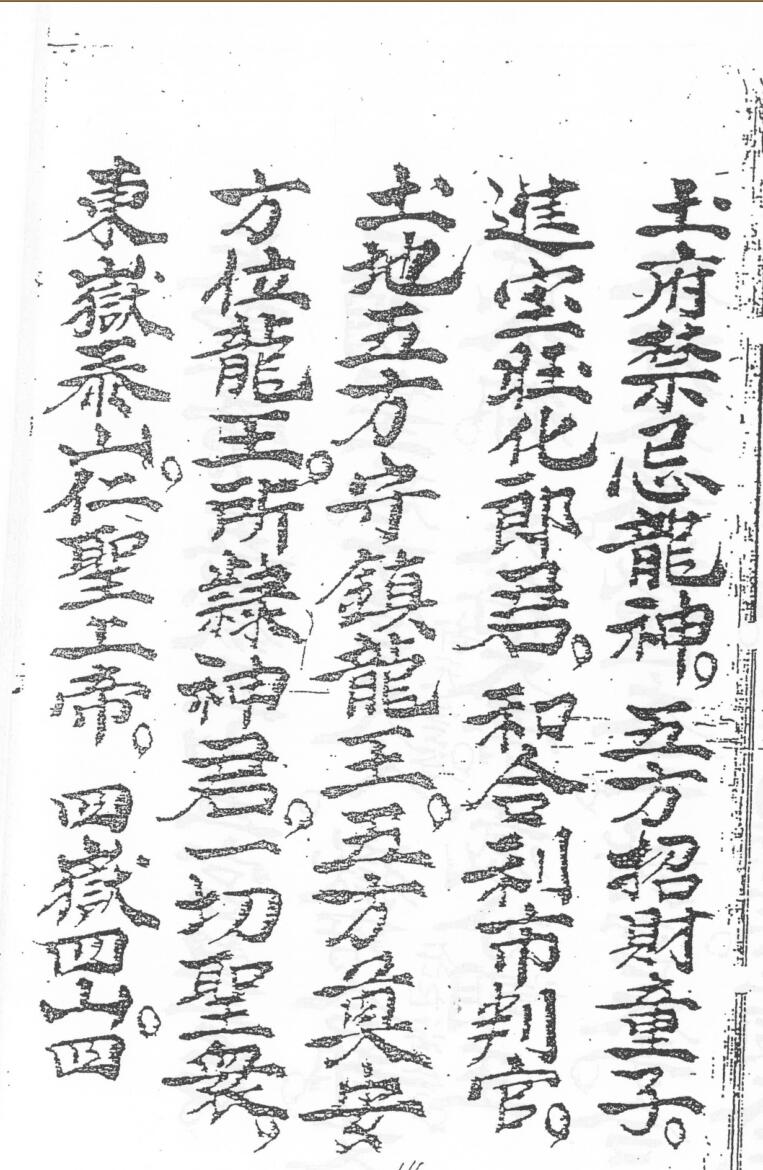 土府禁忌龍神。五方招財童子。
進宝旺化郎君。和合利市判官。
土地五方守鎮龍王。五方奠安
方位龍王。所隸神君。一切聖衆。
東嶽泰山。仁聖上帝。四嶽四山。四